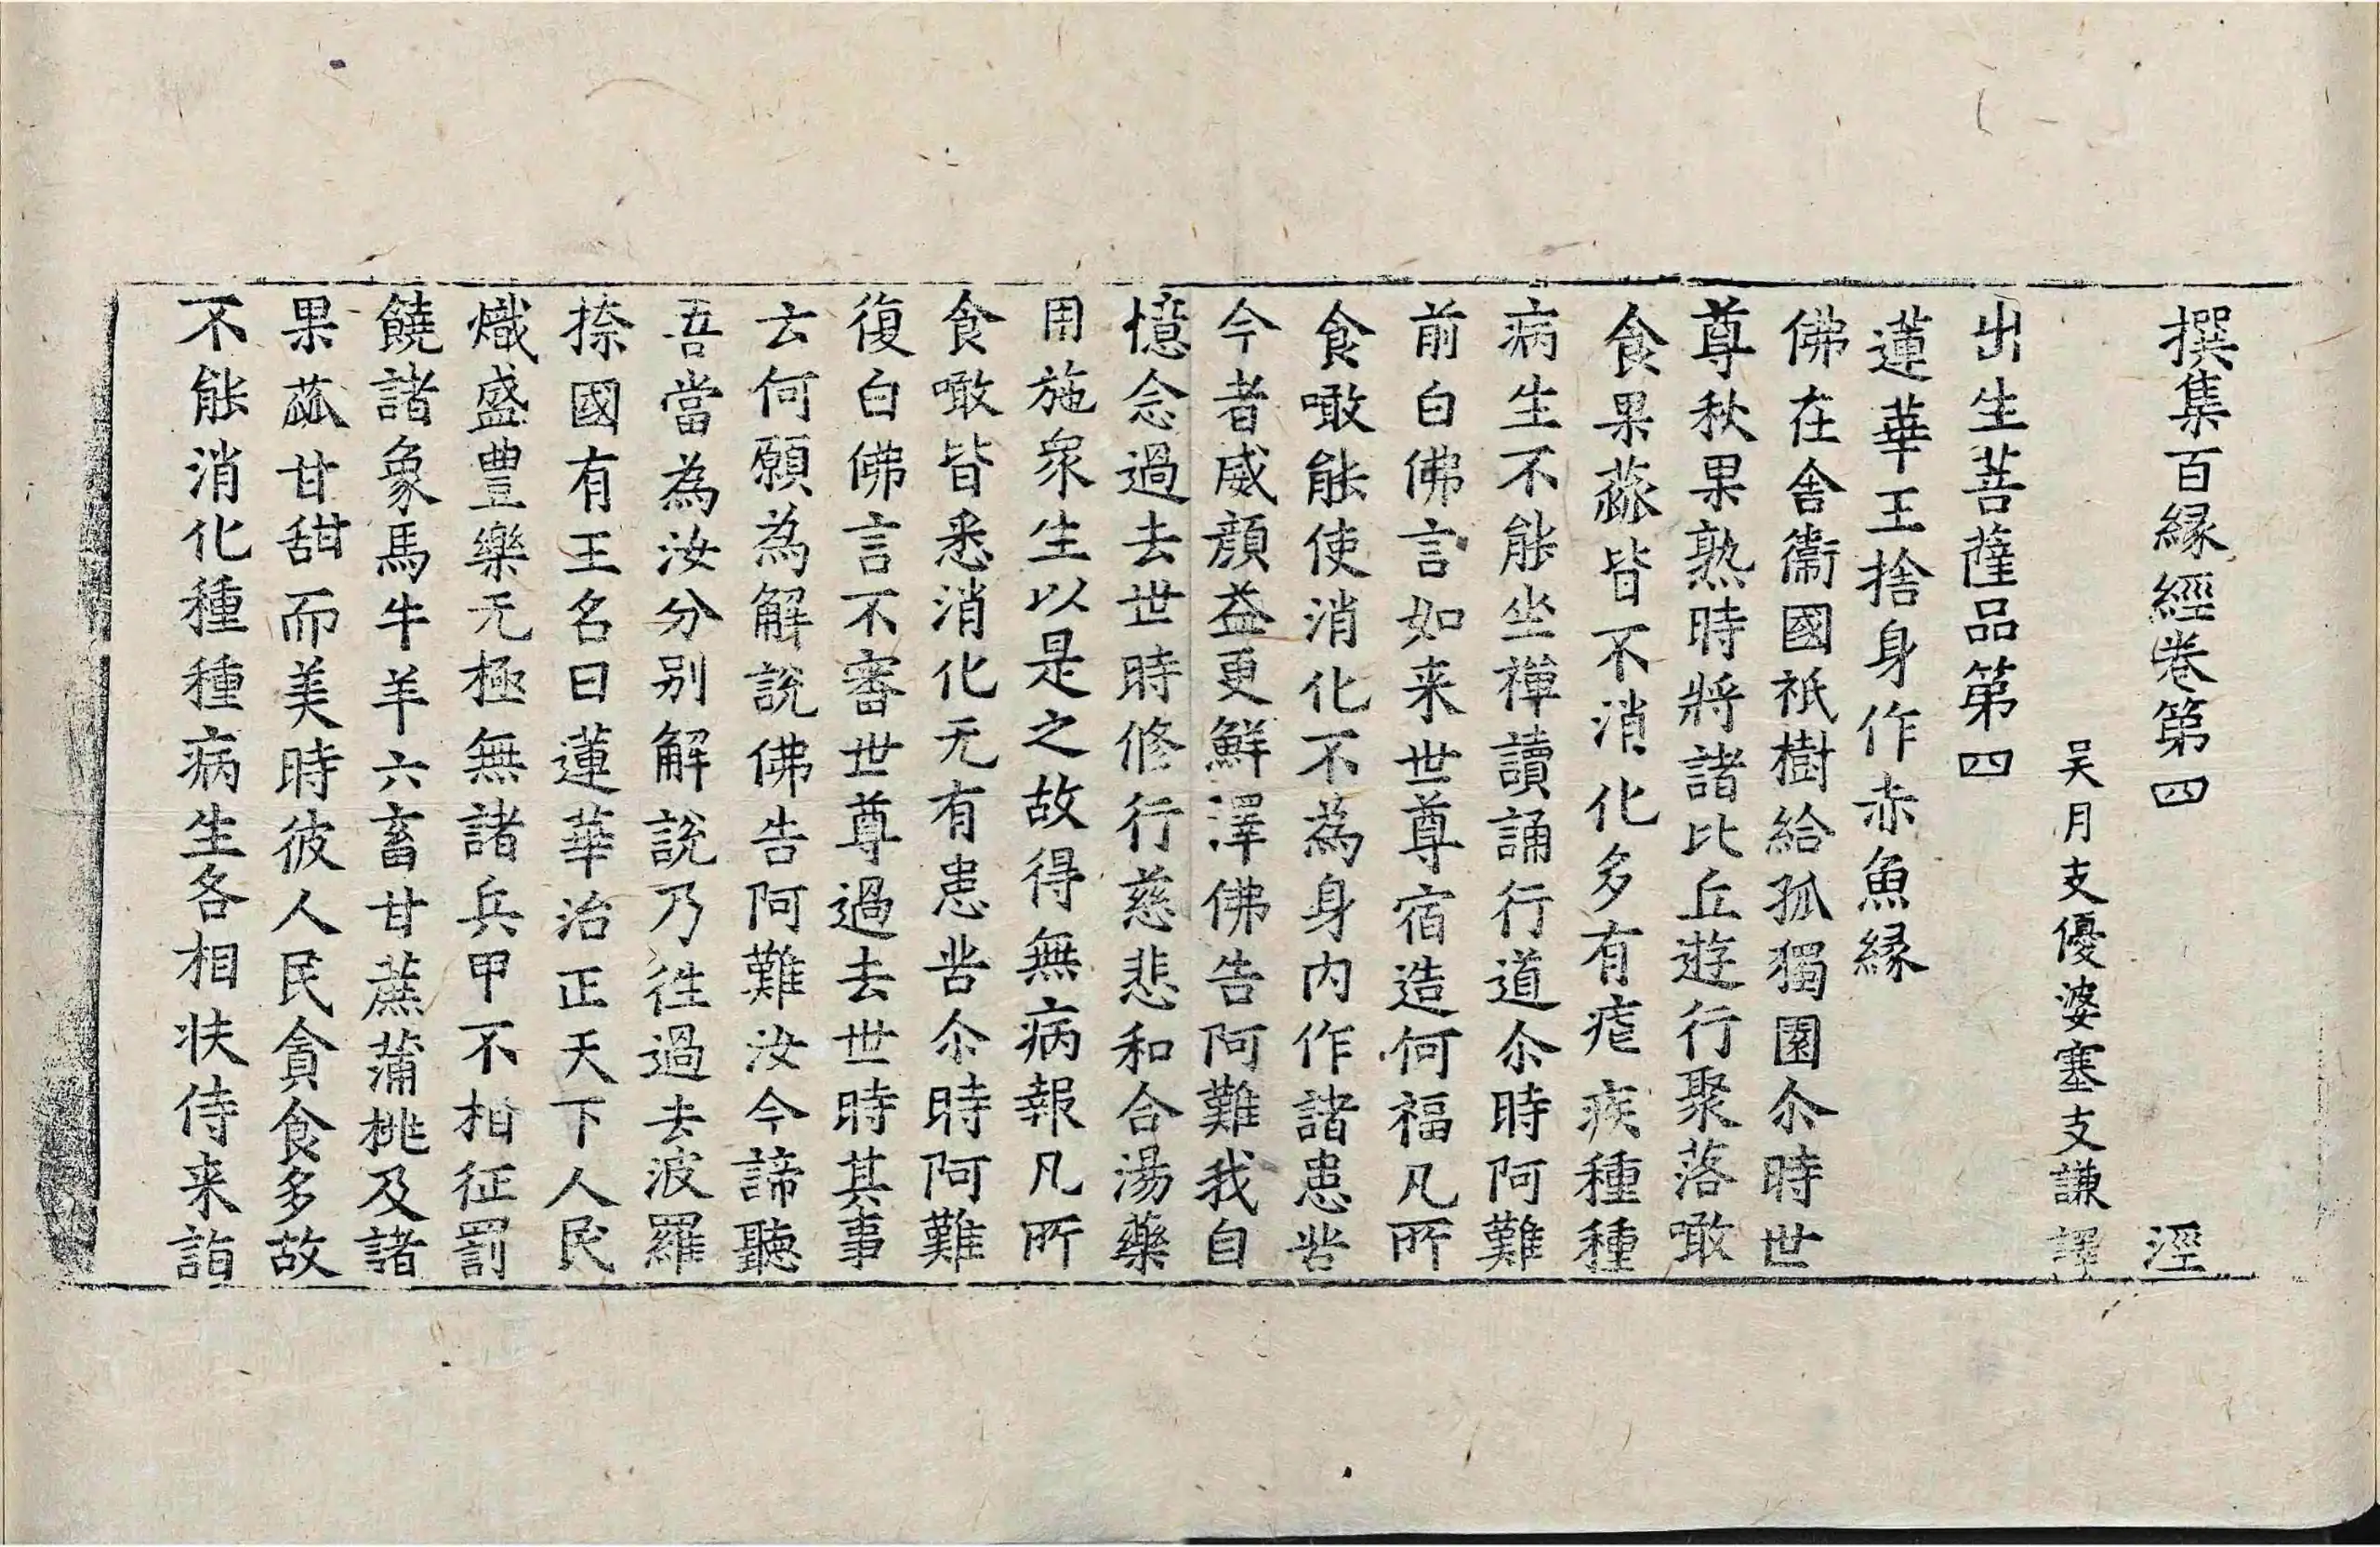 撰集百縁經卷第四　涇
吴月支優婆塞支謙譯
出生菩薩品第四
蓮華王捨身作赤魚縁
佛在舎衞國祇樹給孤獨園尒時世
尊秋果熟時將諸比丘遊行聚落噉
食果蓏皆不消化多有瘧疾種種
病生不能坐禅讀誦行道尒時阿難
前白佛言如来世尊宿造何福凡所
食噉能使消化不為身内作諸患苦
今者威顔益更鮮澤佛告阿難我自
憶念過去世時修行慈悲和合湯藥
用施衆生以是之故得無病報凡所
食噉皆悉消化无有患苦尒時阿難
復白佛言不審世尊過去世時其事
云何願為解說佛告阿難汝今諦聽
吾當為汝分别解說乃徃過去波羅
捺國有王名曰蓮華治正天下人民
熾盛豊樂无極無諸兵甲不相征罰
饒諸象馬牛羊六畜甘蔗蒲桃及諸
果蓏甘甜而美時彼人民貪食多故
不能消化種種病生各相扶侍来詣